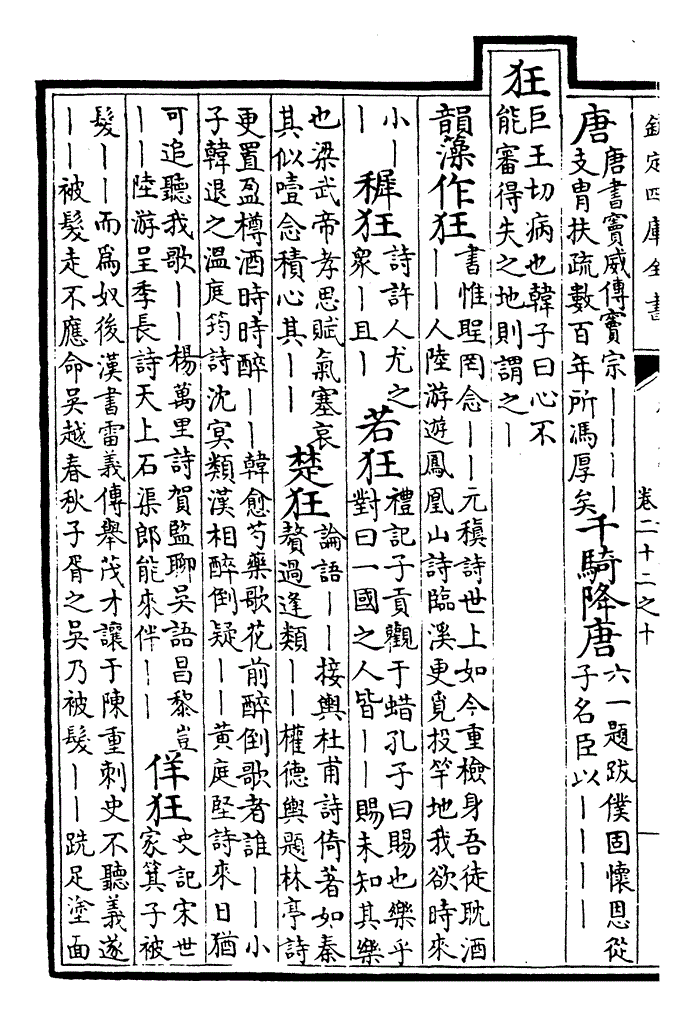 欽定四庫全書
卷二十二之十
唐
唐書竇威傳竇宗丨丨丨丨
支胄扶疏數百年所馮厚矣
千騎降唐
六一題跋僕固懷恩從
子名臣以丨丨丨丨
狂
巨王切病也韓子曰心不
能審得失之地則謂之丨
韻藻作狂
書惟聖罔念丨丨元稹詩世上如今重檢身吾徒耽酒
丨丨人陸游遊鳳凰山詩臨溪更覓投竿地我欲時來
小丨
丨
穉狂
詩許人尤之
衆丨且丨
若狂
禮記子貢觀于蜡孔子曰賜也樂乎
對曰一國之人皆丨丨賜未知其樂
也梁武帝孝思賦氣塞哀
其似噎念積心其丨丨
楚狂
論語丨丨接輿杜甫詩倚著如秦
贅過逢類丨丨權德輿題林亭詩
更置盈樽酒時時醉丨丨韓愈芍藥歌花前醉倒歌者誰丨丨小
子韓退之溫庭筠詩沈冥類漢相醉倒疑丨丨黃庭堅詩來日猶
可追聽我歌丨丨楊萬里詩賀監聊吳語昌黎豈
丨丨陸游呈季長詩天上石渠郎能來伴丨丨
佯狂
史記宋世
家箕子被
髮丨丨而爲奴後漢書雷義傳舉茂才讓于陳重刺史不聽義遂
丨丨被髮走不應命吳越春秋子胥之吳乃被髮丨丨跣足塗面